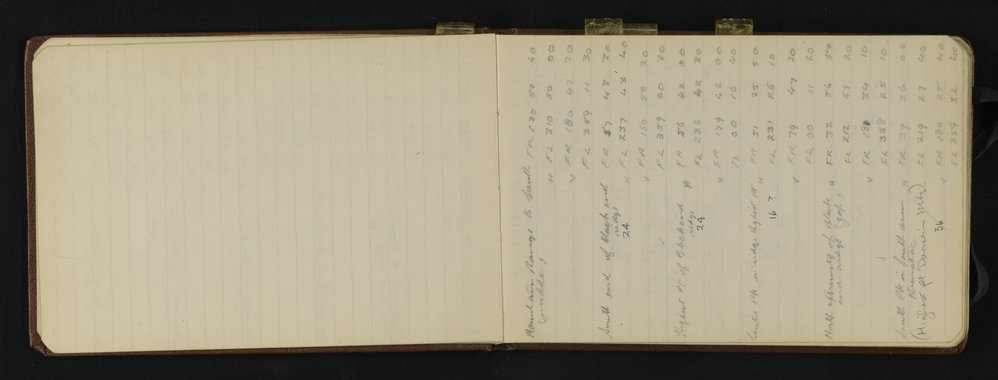 Mountain Range to South FR 130 50 40
H FL 310 50 00
V FR 180 47 20
FL 359 11 30
South end of Black end FR 57 43 50
ridge H FL 237 43 40
24
V FR 180 58 20
FL 359 00 20
Highest Pt of Blackend FR 56 42 00
ridge H FL 236 42 30
24
V FR 179 42 00
FL 00 16 40
Centre Pk on ridge highest Pt FR 51 25 50
H FL 231 26 10
16 ?
V FR 79 47 20
FL 00 11 20
North extremity of Black FR 32 56 50
end ridge (gap) H FL 212 57 20
V FR 181 34 10
FL 358 25 10
South Pk on South arm FR 39 26 00
H FL 219 27 40
(Highest pt Darwin Mts)
36
V FR 180 25 40
FL 359 32 40